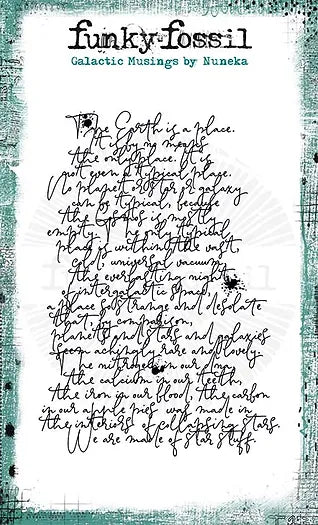 funkyfossil
Galactic Musings by Nuneka
The Earth is a place.
It is by no means
the only place. It is
not even a typical place.
No planet or star or galaxy
can be typical, because
the Cosmos is mostly
empty. The only typical
place is within the vast,
cold, universal vacuum,
the everlasting night
of intergalactic space,
a place so strange and desolate
that, by comparison,
planets and stars and galaxies
seem achingly rare and lovely
The nitrogen in our DNA,
the calcium in our teeth,
the iron in our blood, the carbon
in our apple pies was made in
the interiors of collapsing stars.
We are made of star stuff.
funky fossil